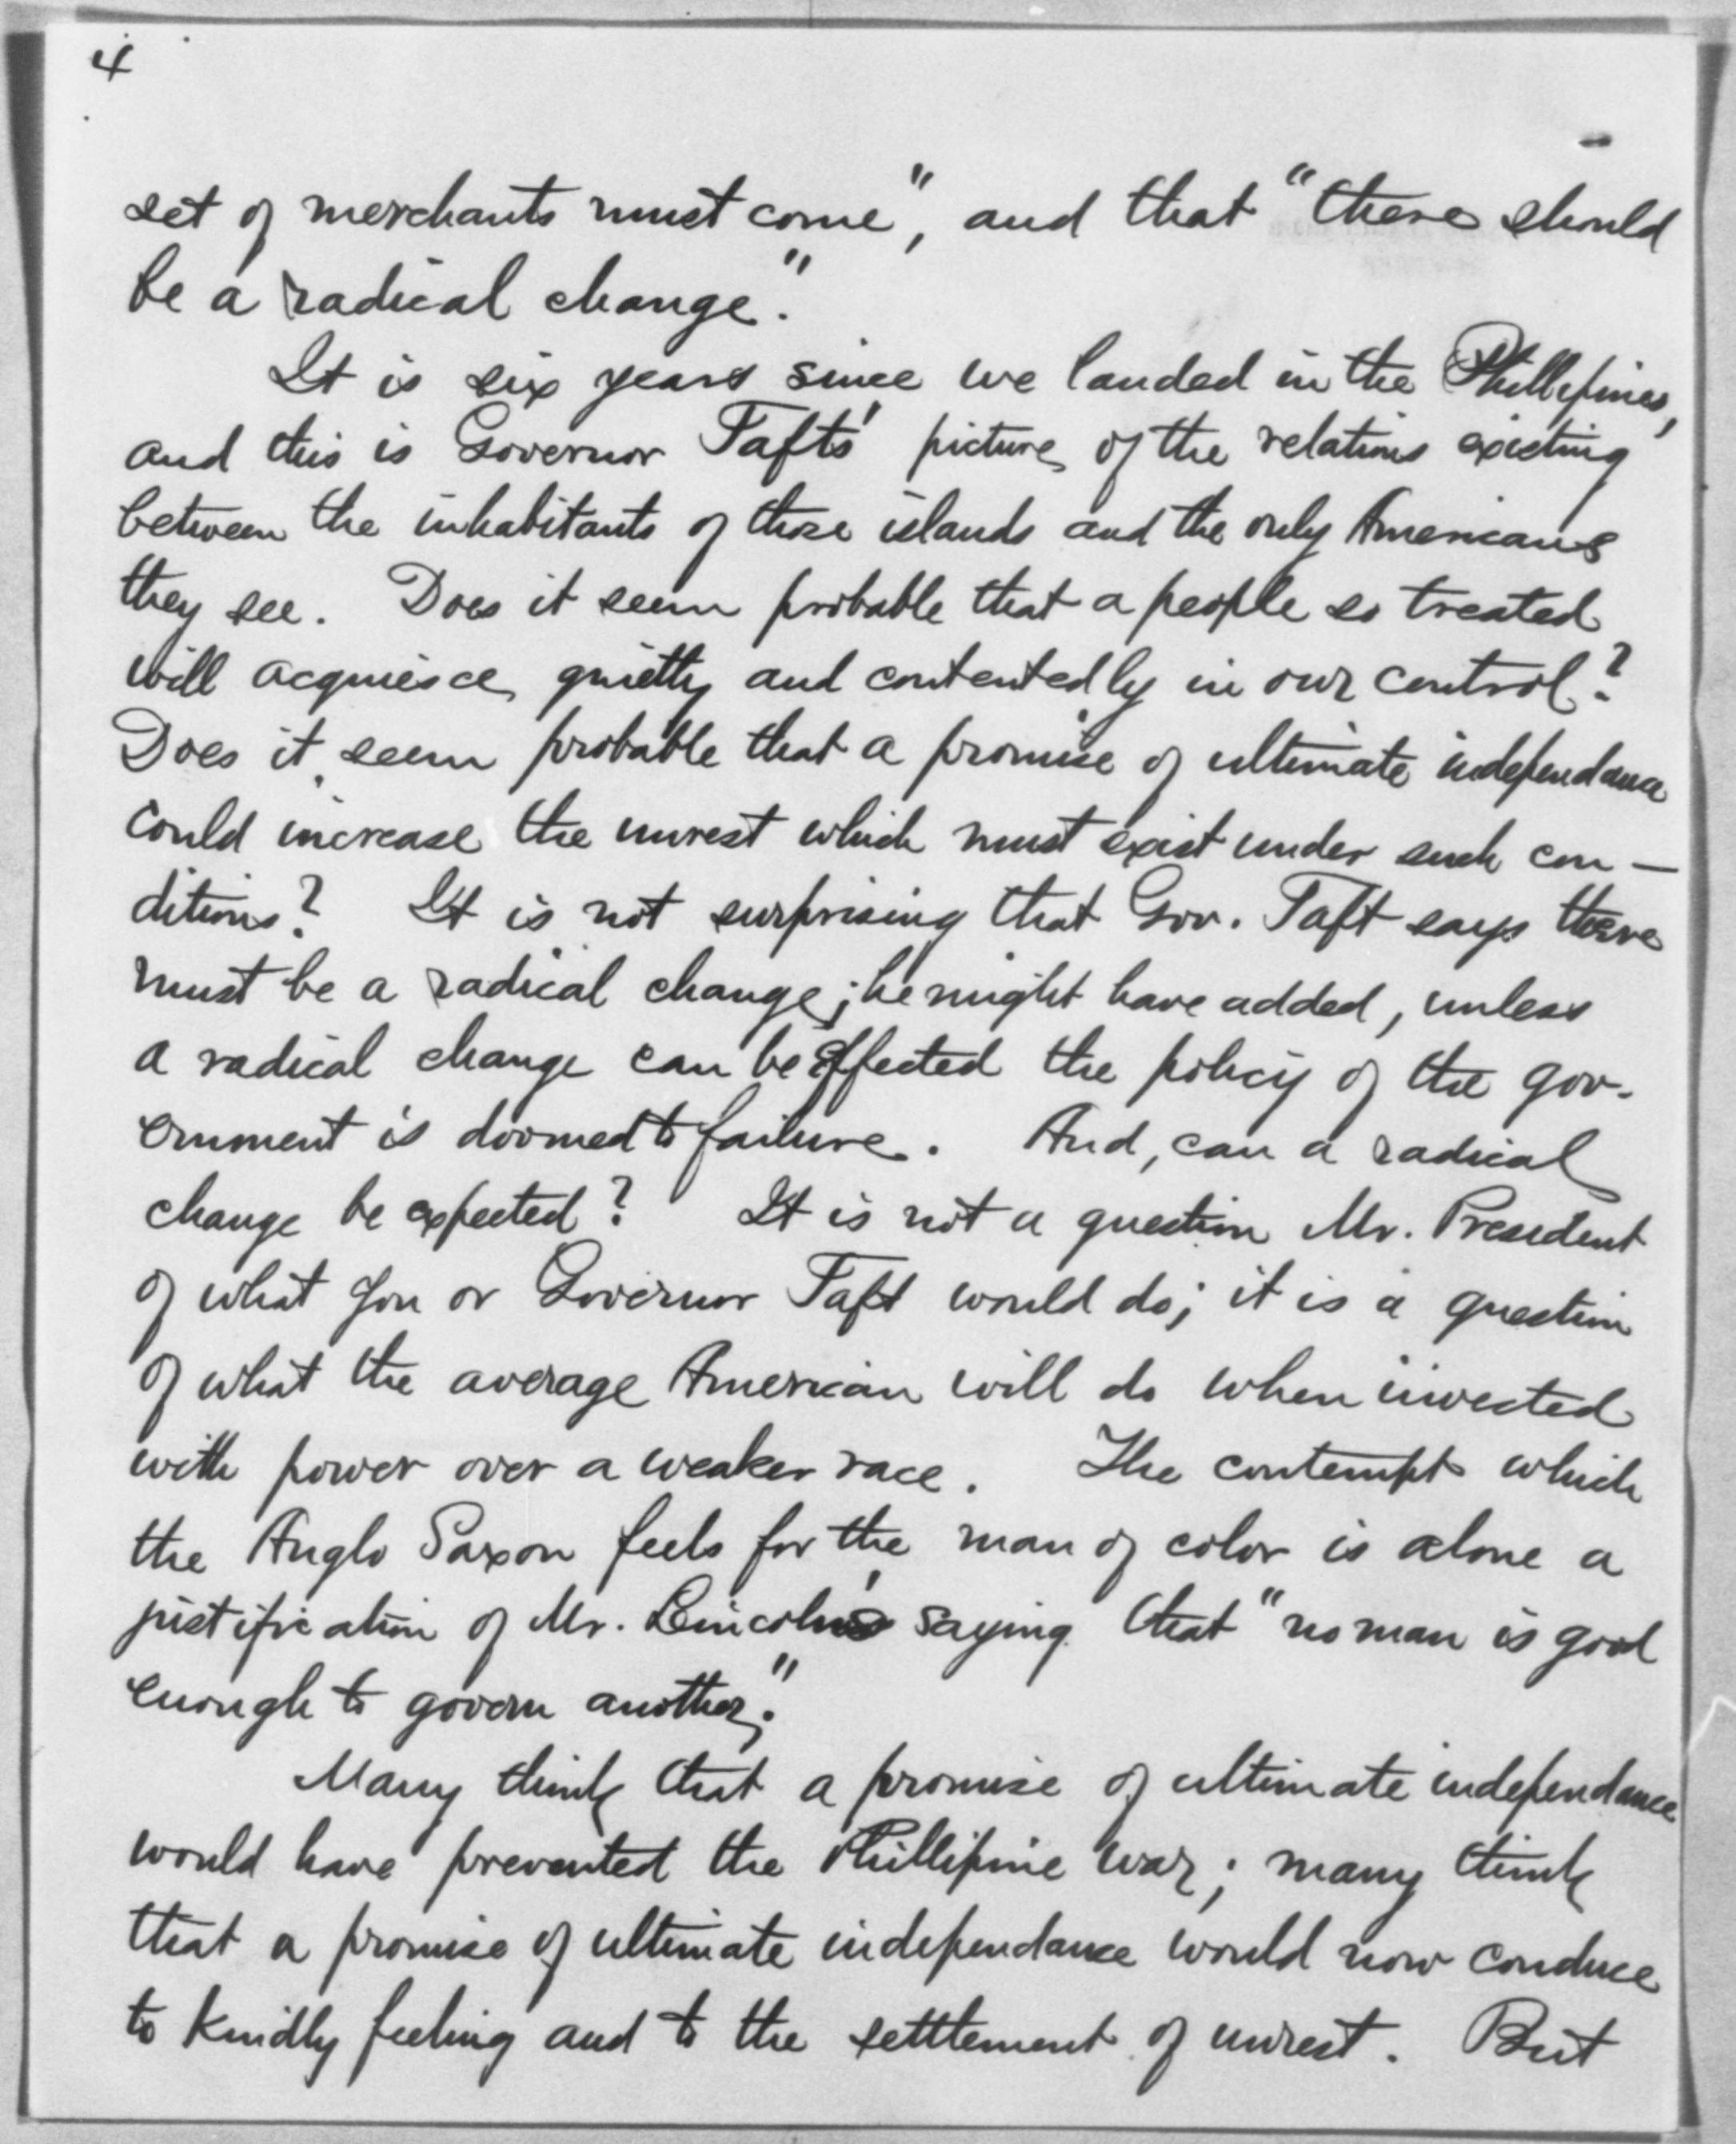 4
set of merchants must come", and that "there should
be a radical change."
It is six years since we landed in the Phillipines,
and this is Governor Taft's picture of the relations existing
between the inhabitants of those islands and the only Americans
they see. Does it seem probable that a people so treated
will acquiesce quietly and contentedly in our control?
Does it seem probable that a promise of ultimate independance
could increase the unrest which must exist under such con-
ditions? It is not surprising that Gov. Taft says there
must be a radical change; he might have added, unless
a radical change can be effected the policy of the gov-
ernment is doomed to failure. And, can a radical
change be expected? It is not a question Mr. President
of what you or Governor Taft would do; it is a question
of what the average American will do when invested
with power over a weaker race. The contempt which
the Anglo Saxon feels for the man of color is alone a
justification of Mr. Lincoln's saying that "no man is good
enough to govern another."
Many think that a promise of ultimate independance
would have prevented the Phillipine war; many think
that a promise of ultimate independance would now conduce
to kindly feeling and to the settlement of unrest. But